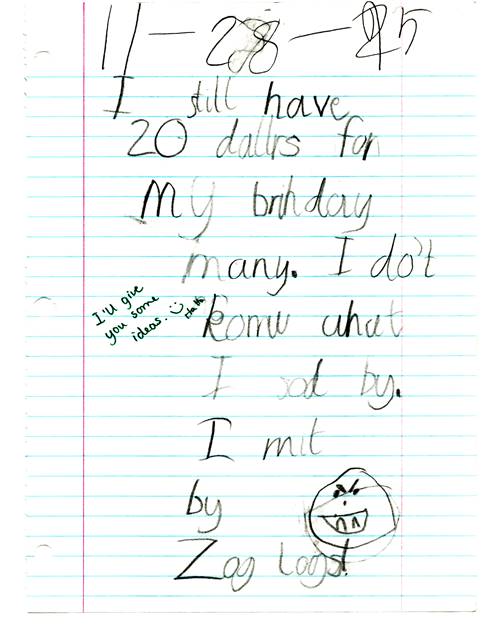 11-28-25
I still have
20 dallrs for
My brihday
many. I do't
I'll give
you some
ideas.
komw what
I sod by.
I mit
by
Zog Logs!